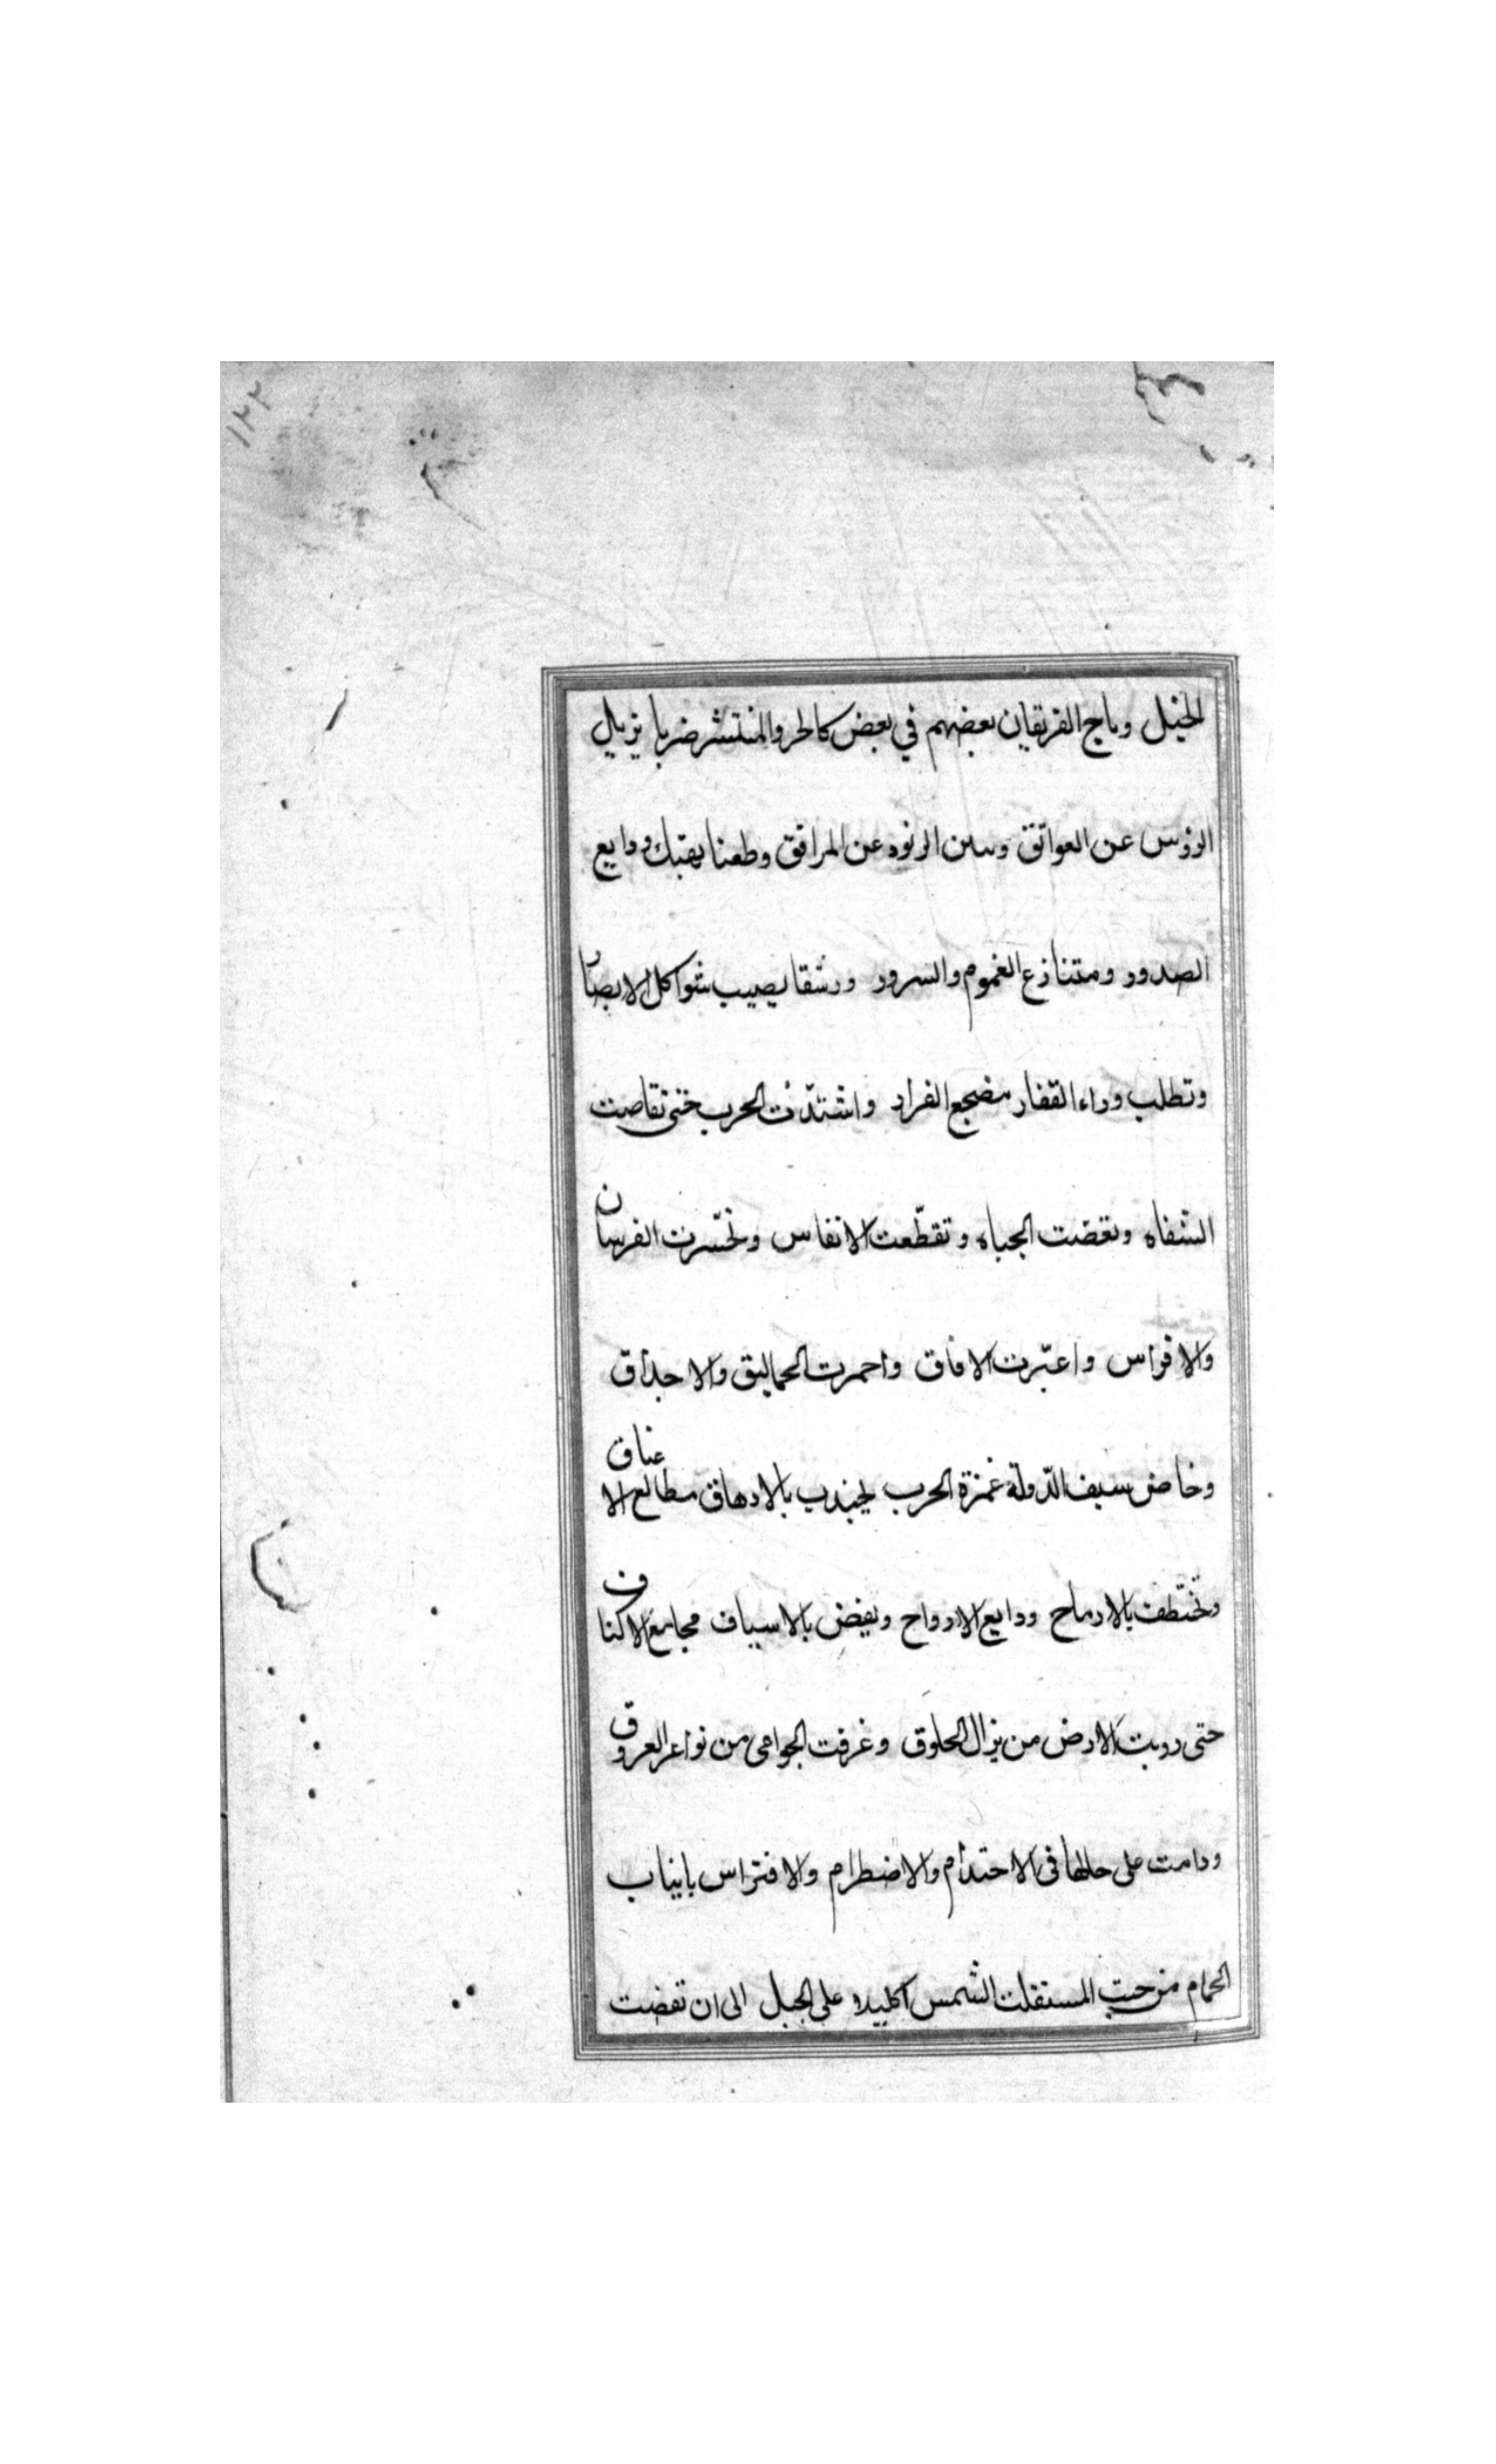 الخيل وماج الفريقان بعضهم في بعض كالجر والمنتشر ضربا يزيل
الرؤس عن العواتق وسن الزنود عن المرافق وطعنا يهتك ودايع
الصدور ومتنازع الغموم والسرور ورشقا يصيب شواكل الابصار
وتطلب وراء القفار مضجع الفرار واشتدّت الحرب حتى تقاصت
الشفاه ونعضت الجباه وتقطّعت الانفاس وتحسّرت الفرسان
والافراس واغبّرت الافاق واحمرت الحماليق والاحداق
وخاض سيف الدّولة غمرة الحرب يجندب بالارهاق مطالع الاعناق
وتختطف بالارماح ودايع الارواح ويفيض بالاسياف مجامع الاكناف
حتى رويت الارض من نزال الحلوق وغرقت الحوامى من نواعر العروق
ودامت على حالها فى الاحتدام والاضطرام والافتراس بانياب
الحمام من حيث استقلت الشمس اكليلا على الجبل الى ان تفضت
١٢٢